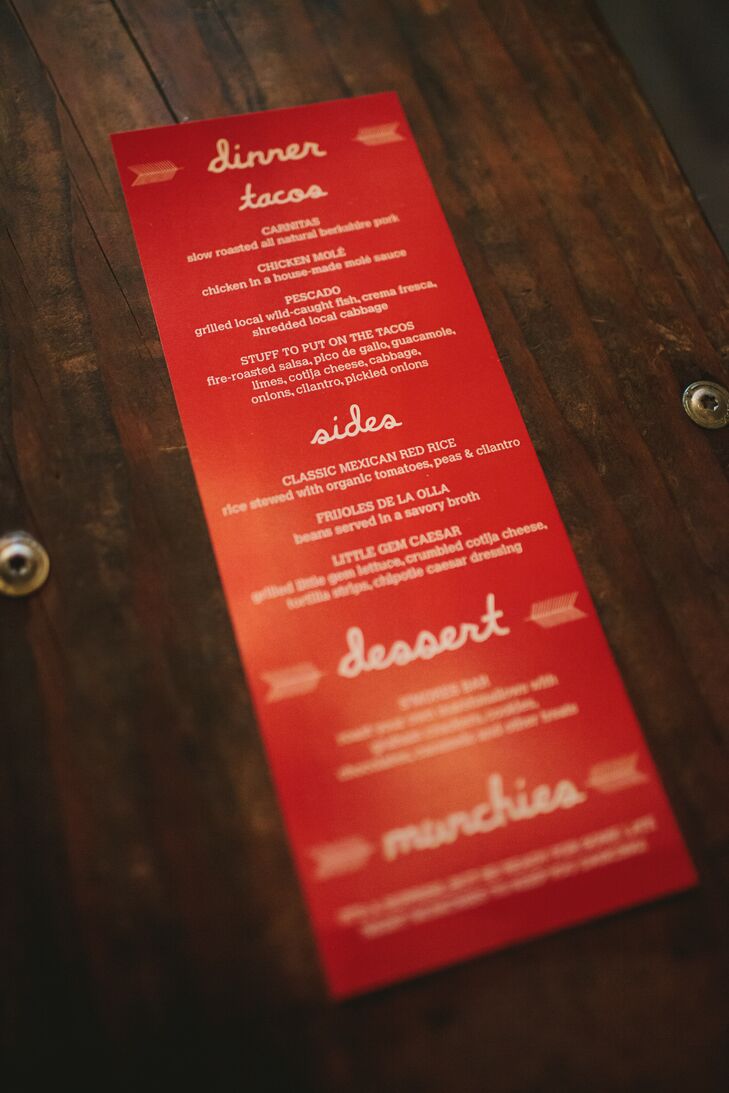 dinner
tacos
CARNITAS
slow roasted all natural berkshire pork
CHICKEN MOLÉ
chicken in a house-made molé sauce
PESCADO
grilled local wild-caught fish, crema fresca,
shredded local cabbage
STUFF TO PUT ON THE TACOS
fire-roasted salsa, pico de gallo, guacamole,
limes, cotija cheese, cabbage,
onions, cilantro, pickled onions
sides
CLASSIC MEXICAN RED RICE
rice stewed with organic tomatoes, peas & cilantro
FRIJOLES DE LA OLLA
beans served in a savory broth
LITTLE GEM CAESAR
grilled little gem lettuce, crumbled cotija cheese,
tortilla strips, chipotle caesar dressing
dessert
S'MORES BAR
your own marshmallows with
graham crackers, cookies,
chocolates, and other treats
munchies